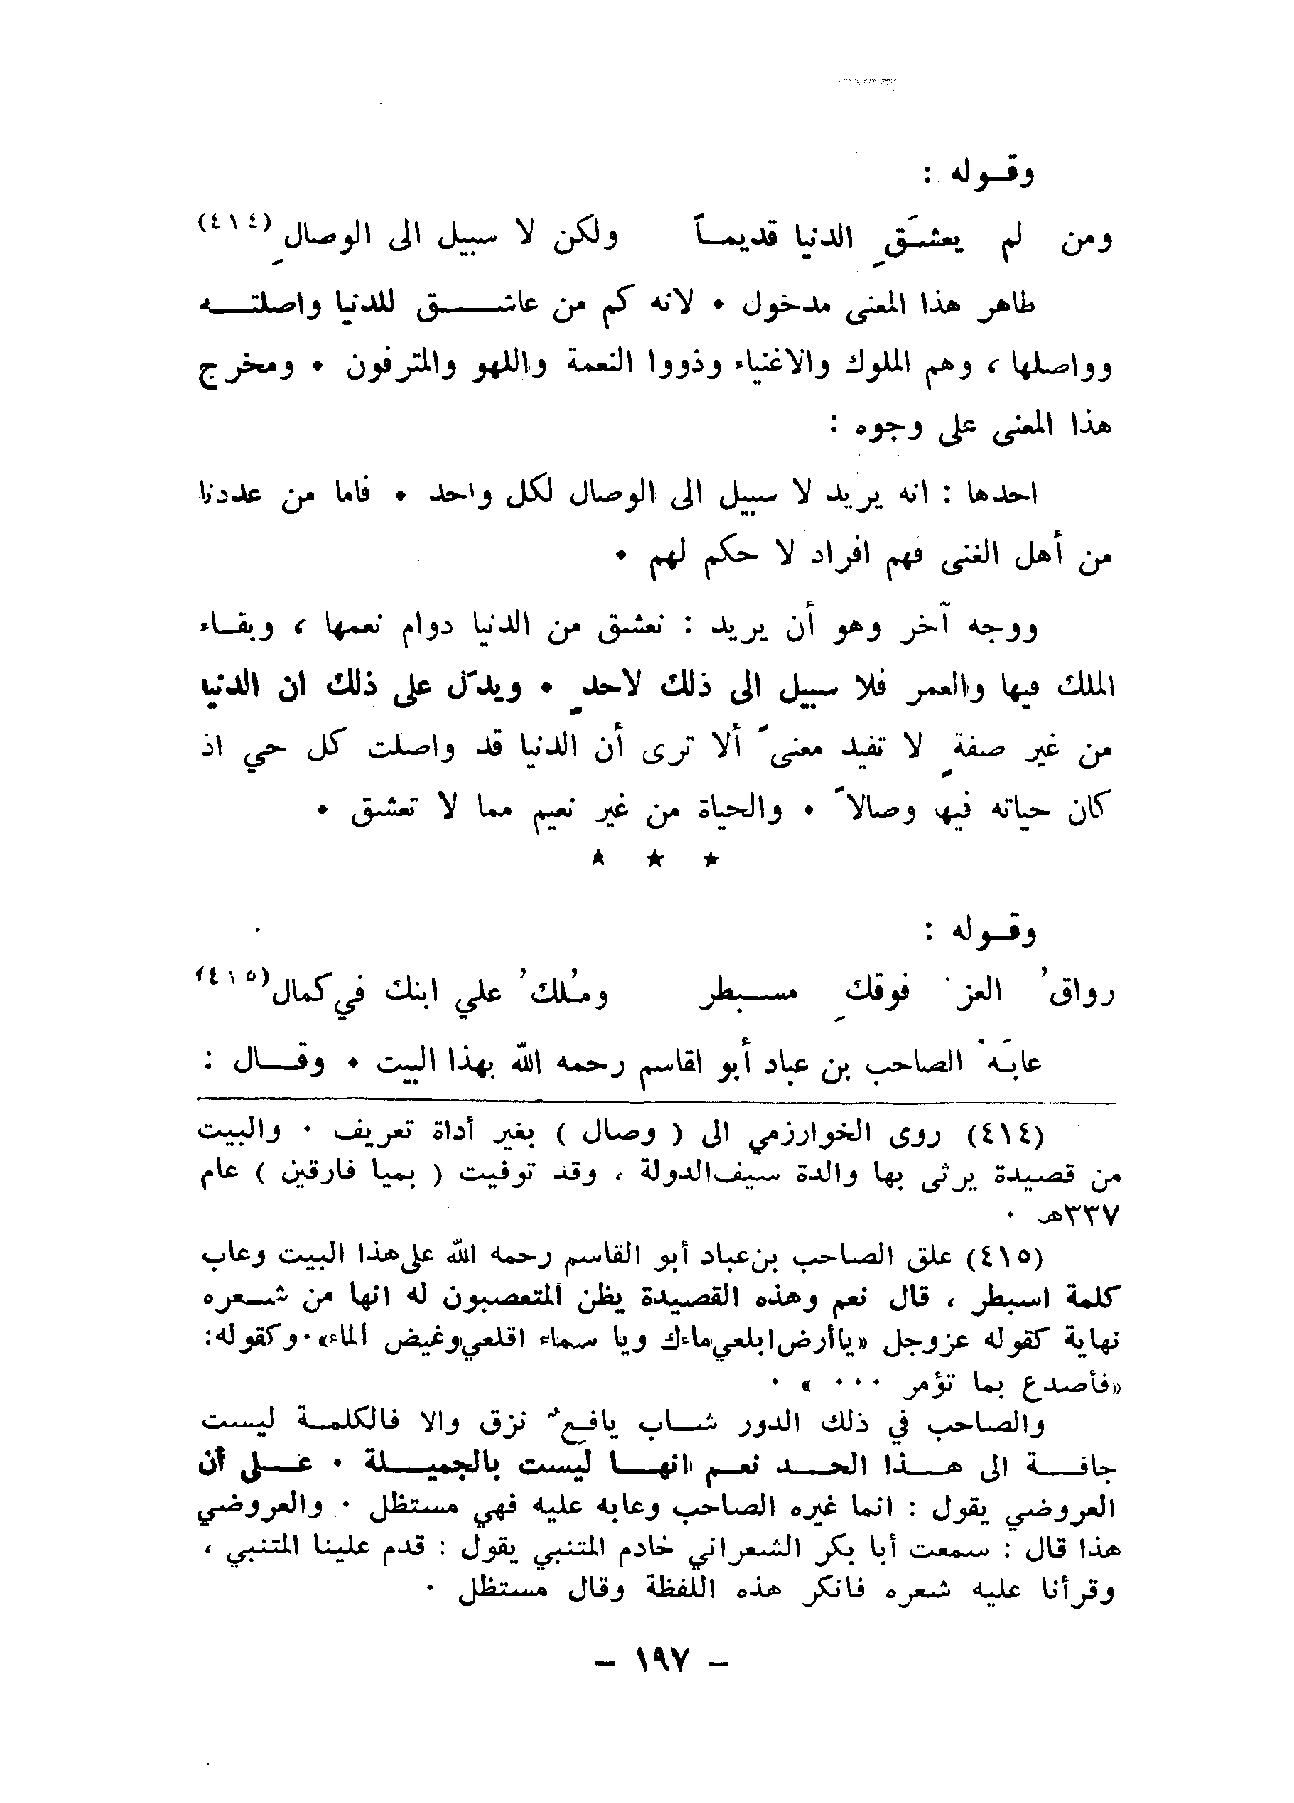 وقـوله :
ومن لم يعشَقِ الدنيا قديمـاً ولكن لا سبيل الى الوصالِ (٤١٤)
ظاهر هذا المعنى مدخول • لانه كم من عاشـــق للدنيا واصلتـــه
وواصلها ، وهم الملوك والاغنياء وذووا النعمة واللهو والمترفون • ومخرج
هذا المعنى على وجوه :
احدها : انه يريد لا سبيل الى الوصال لكل واحد • فاما من عددنا
من أهل الغنى فهم افراد لا حكم لهم •
ووجه آخر وهو أن يريد : نعشق من الدنيا دوام نعمها ، وبقـاء
الملك فيها والعمر فلا سبيل الى ذلك لاحدٍ • ويدل على ذلك ان الدنيا
من غير صفةٍ لا تفيد معنىً ألا ترى أن الدنيا قد واصلت كل حي اذ
كان حياته فيها وصالاً • والحياة من غير نعيم مما لا تعشق •
★ ★ ★
وقـوله :
رواقُ العز فوقكِ مسـبطر ومُلكُ علي ابنك في كمال (٤١٥)
عابَهَ الصاحب بن عباد أبو اقاسم رحمه الله بهذا البيت • وقــال :
(٤١٤) روى الخوارزمي الى ( وصال ) بغير أداة تعريف • والبيت
من قصيدة يرثى بها والدة سيف الدولة ، وقد توفيت ( بميا فارقين ) عام
٣٣٧هـ •
(٤١٥) علق الصاحب بن عباد أبو القاسم رحمه الله على هذا البيت وعاب
كلمة اسبطر ، قال نعم وهذه القصيدة يظن المتعصبون له انها من شـعره
نهاية كقوله عزوجل «يا أرض ابلعي ماءك ويا سماء اقلعي وغيض الماء» • وكقوله:
«فأصدع بما تؤمر ••• » •
والصاحب في ذلك الدور شـاب يافعٌ نزق والا فالكلمـة ليست
جافـة الى هـذا الحـد نعـم انهـا ليست بالجميـلة • عـلى أن
العروضي يقول : انما غيره الصاحب وعابه عليه فهي مستظل • والعروضي
هذا قال : سمعت أبا بكر الشعراني خادم المتنبي يقول : قدم علينا المتنبي ،
وقرأنا عليه شعره فانكر هذه اللفظة وقال مستظل •
– ١٩٧ –